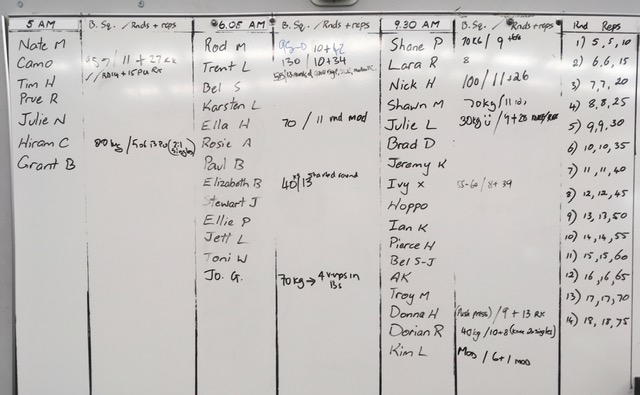 5 AM B. Sq. / Rnds + reps 6.05 AM B. Sq. / Rnds + reps 9.30 AM B. Sq. / Rnds + reps Rnd Reps
Nate M Rod M 10+42 Shane P 70kg / 9 1) 5, 5, 10
Camo / 11 + 27 Rx Trent L 130 / 10+34 Lara R 8 2) 6, 6, 15
Tim H Bel S Nick H 100 / 11+26 3) 7, 7, 20
Prue R Karsten L Shawn M 70kg / 4) 8, 8, 25
Julie N Ella H 70 / 11 rnd mod Julie L 30kg / 9 + 28 5) 9, 9, 30
Hiram C Rosie A Brad D 6) 10, 10, 35
Grant B Paul B Jeremy K 7) 11, 11, 40
Elizabeth B 40kg / 13 started round Ivy x 55-60 / 8 + 39 8) 12, 12, 45
Stewart J Hoppo 9) 13, 13, 50
Ellie P Ian K
Jett L Pierce H 10) 14, 14, 55
Toni W Bel S-J 11) 15, 15, 60
Jo. G. 70kg → 4 v-ups in AK 12) 16, 16, 65
Troy M 13) 17, 17, 70
Donna H (Push press) / 9 + 13 Rx 14) 18, 18, 75
Dorian R 40kg / 10+8
Kim L Mod / 6+1 mod